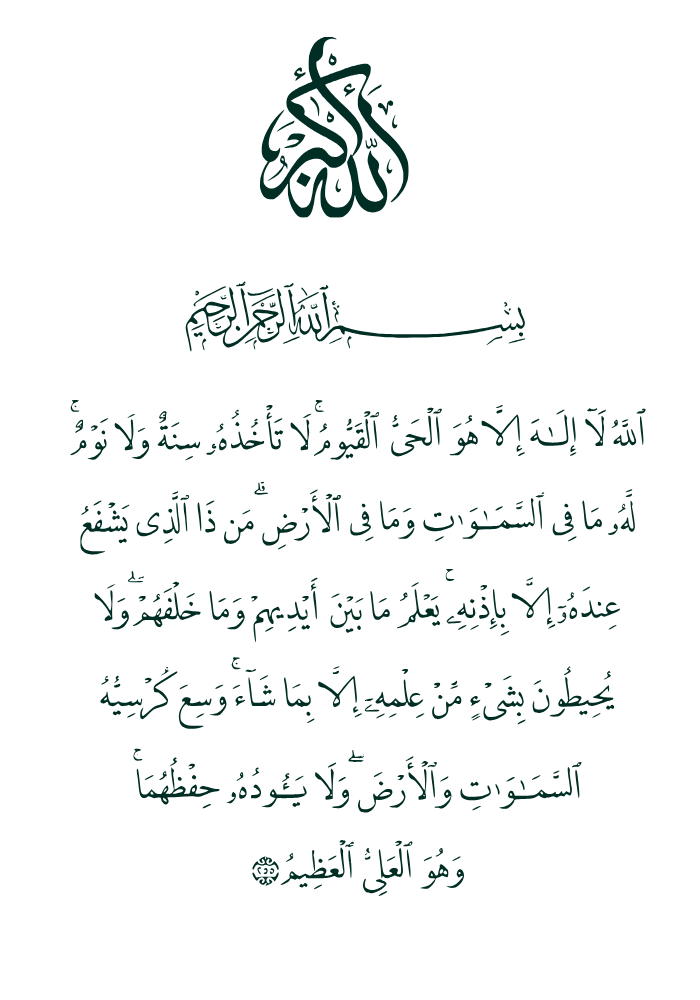 الله أكبر
بِسْمِ ٱللَّهِ ٱلرَّحْمَٰنِ ٱلرَّحِيمِ
ٱللَّهُ لَآ إِلَـٰهَ إِلَّا هُوَ ٱلْحَىُّ ٱلْقَيُّومُ ۚ لَا تَأْخُذُهُۥ سِنَةٌ وَلَا نَوْمٌ ۚ
لَّهُۥ مَا فِى ٱلسَّمَـٰوَٰتِ وَمَا فِى ٱلْأَرْضِ ۗ مَن ذَا ٱلَّذِى يَشْفَعُ
عِندَهُۥٓ إِلَّا بِإِذْنِهِۦ ۚ يَعْلَمُ مَا بَيْنَ أَيْدِيهِمْ وَمَا خَلْفَهُمْ ۖ وَلَا
يُحِيطُونَ بِشَىْءٍ مِّنْ عِلْمِهِۦٓ إِلَّا بِمَا شَآءَ ۚ وَسِعَ كُرْسِيُّهُ
ٱلسَّمَـٰوَٰتِ وَٱلْأَرْضَ ۖ وَلَا يَـُٔودُهُۥ حِفْظُهُمَا ۚ
وَهُوَ ٱلْعَلِىُّ ٱلْعَظِيمُ ۝٢٥٥